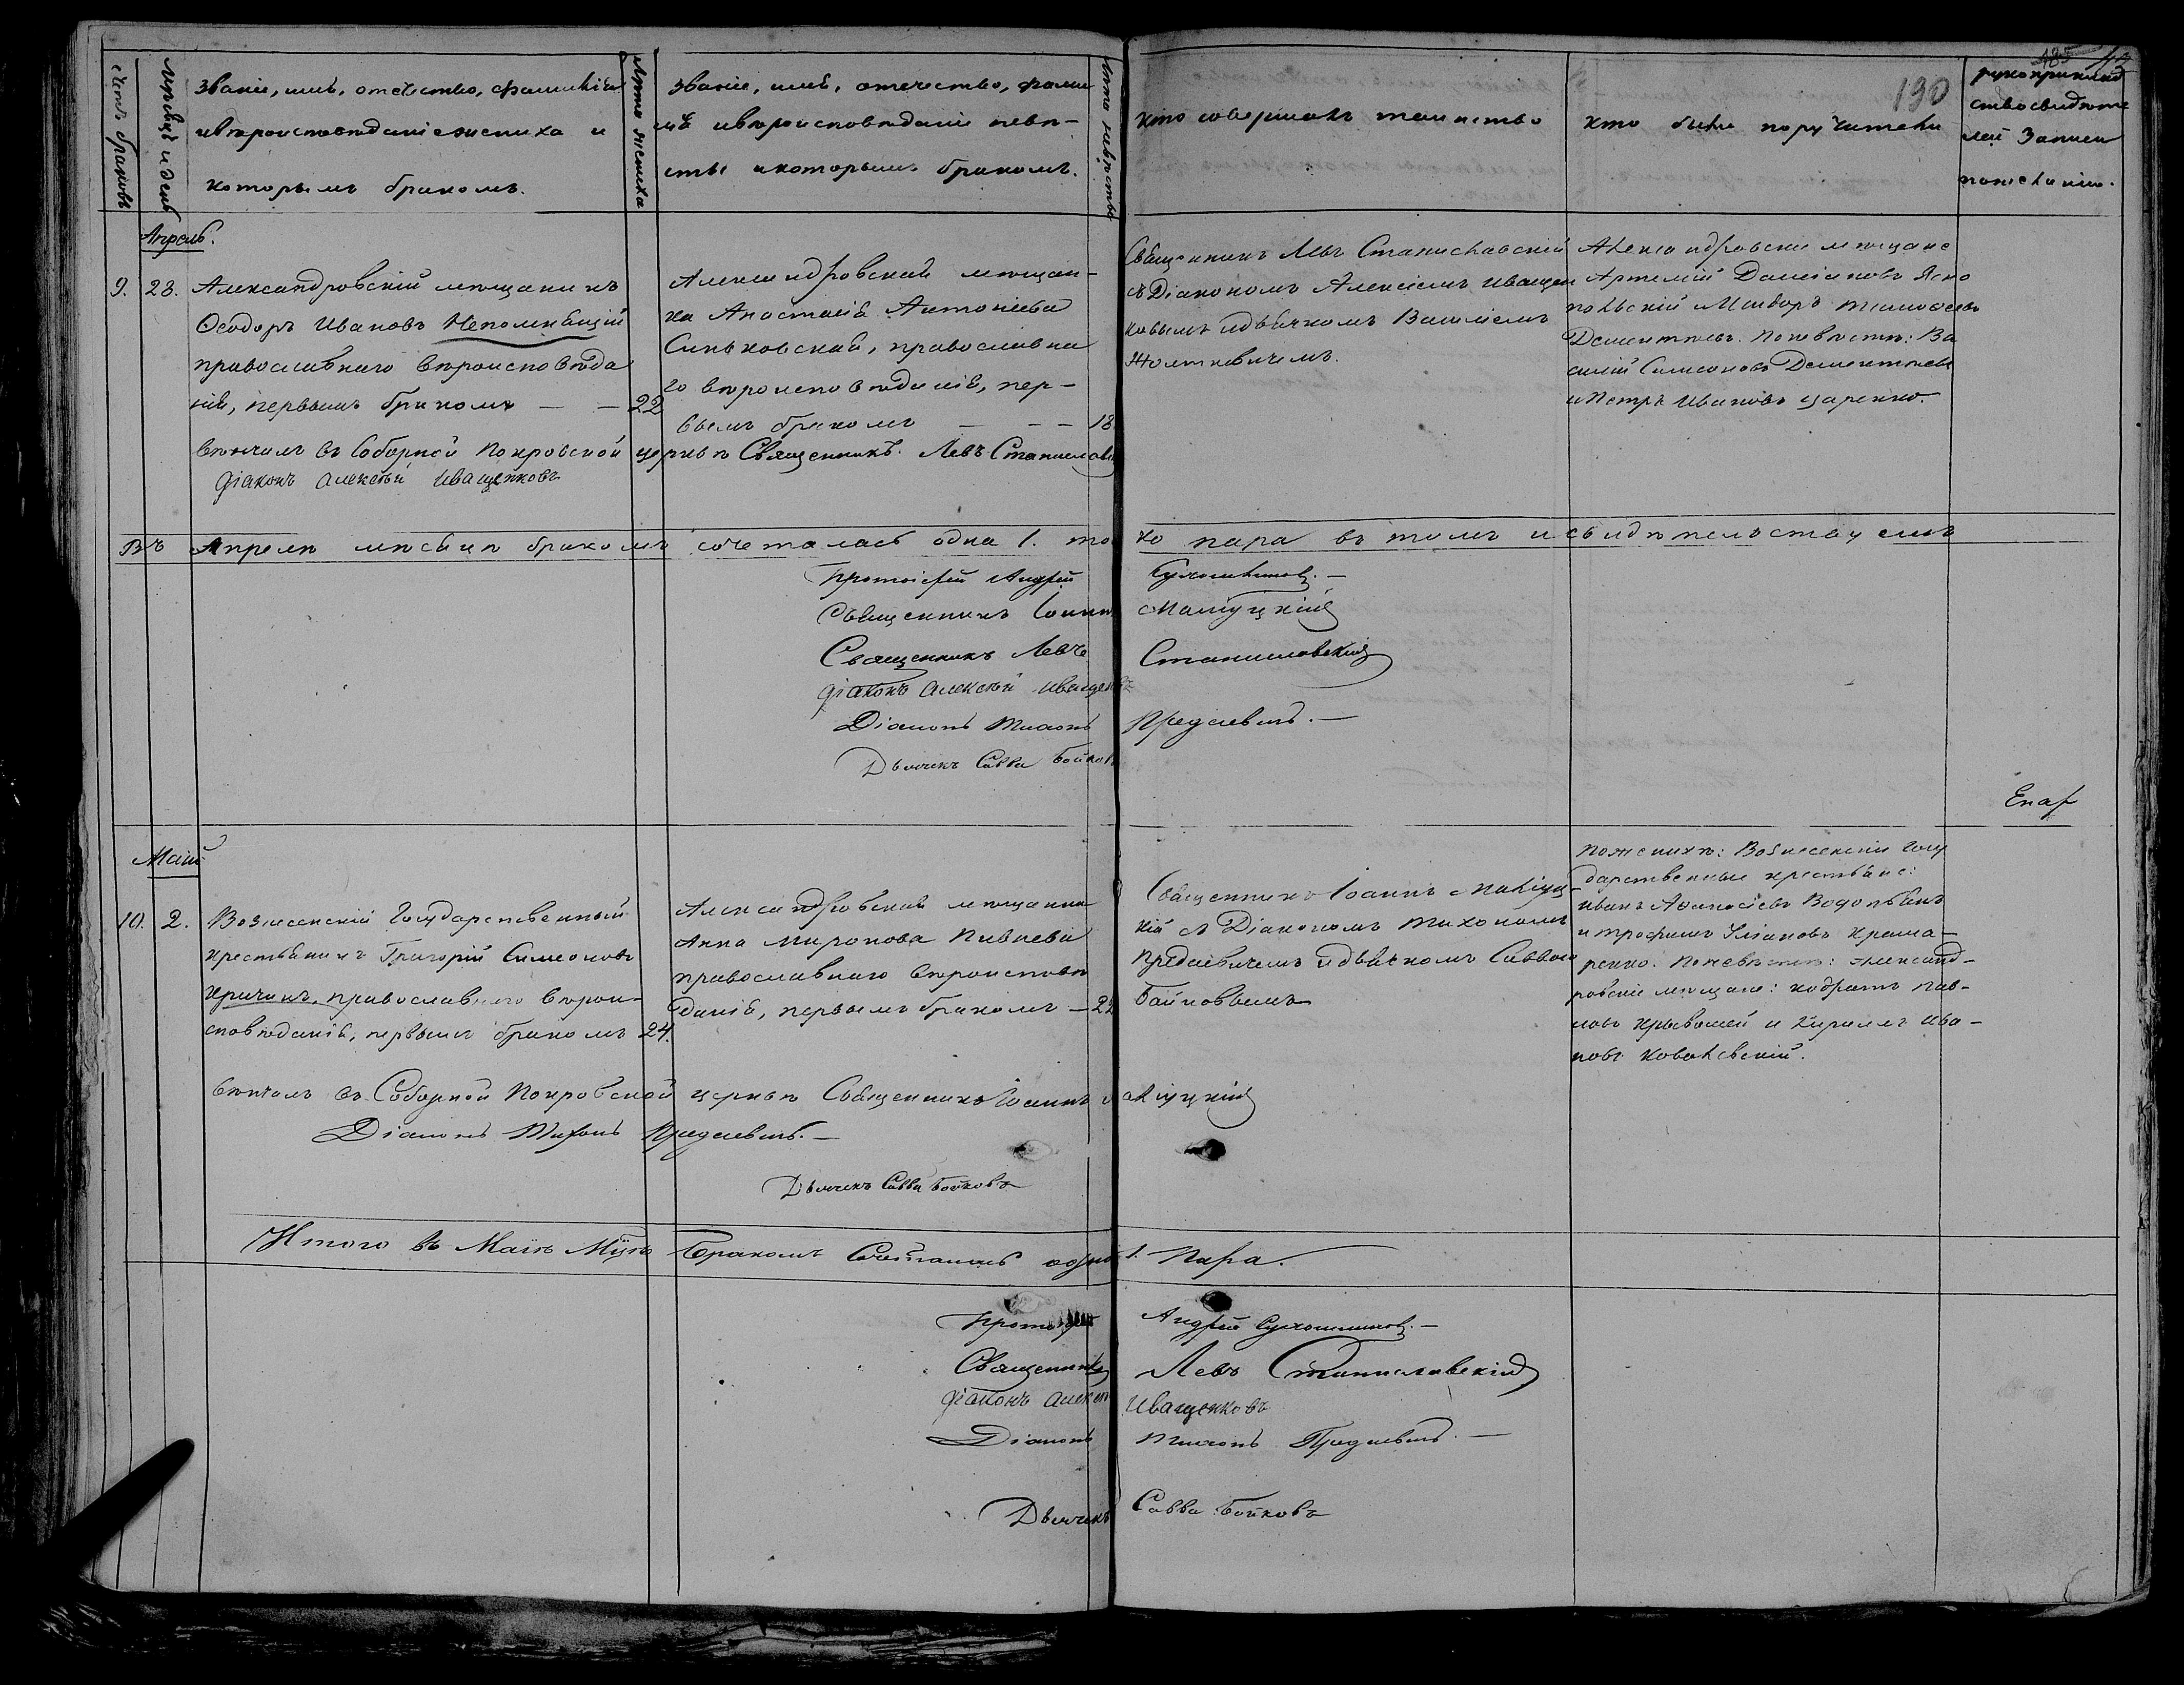 485 43
190
Счетъ браковъ
Мѣсяцъ и день
Званіе, имя, отечество, фамилія
и вѣроисповѣданіе жениха и
которымъ бракомъ.
Лѣта жениха
Званіе, имя, отечество, фами
лія и вѣроисповѣданіе невѣ-
сты и которымъ бракомъ.
Лѣта невѣсты
Кто совершалъ таинство
Кто были поручители
рукоприклад
ство свидѣте
лей Записи
по желанію.
Апрель.
9. 28. Александровскій мѣщанинъ
Ѳеодоръ Ивановъ Непомнящій
православнаго вѣроисповѣда
нія, первымъ бракомъ — — 22
Александровская мѣщан-
ка Анастасія Антоніева
Синьковская, православна
го вѣроисповѣданія, пер-
вымъ бракомъ — — — 18
Священникъ Левъ Станиславскій
съ Діакономъ Алексіемъ Иващен
ковымъ и дьячкомъ Василіемъ
Жолткевичемъ.
Александровскіе мѣщане
Артемій Даміановъ Ясно
польскій Исидоръ Тимоѳеевъ
Дементьевъ. По невѣстѣ: Ва
силій Симеоновъ Дементьевъ
и Петръ Ивановъ Царенко.
вѣнчалъ въ Соборной Покровской церкви Священникъ Левъ Станиславскій
Діаконъ Алексѣй Иващенковъ
Въ Апрелѣ мѣсяцѣ бракомъ сочеталась одна 1. то ко пара въ томъ и свидѣтельствуемъ
Протоіерей Андрей Сухомлиновъ. —
Священникъ Іоаннъ Малѣуцкій
Священникъ Левъ Станиславскій
Діаконъ Алексѣй Иващенковъ
Діаконъ Тихонъ Предиевичъ. —
Дьячекъ Савва Бойковъ
Май
10. 2. Вознесенскій Государственный
крестьянинъ Григорій Симеоновъ
Кричинъ, православнаго вѣрои-
сповѣданія, первымъ бракомъ 24.
Александровская мѣщанка
Анна Миронова Пивнева
православнаго вѣроисповѣ
данія, первымъ бракомъ —
Священникъ Іоаннъ Малѣуц-
кій съ Діакономъ Тихономъ
Предиевичемъ и дьячкомъ Саввою
Бойковымъ
По женихѣ: Вознесенскіе Госу
дарственные крестьяне:
Иванъ Аѳанасіевъ Водолѣянъ
и Трофимъ Уліановъ Крама-
ренко. По невѣстѣ: Александ-
ровскіе мѣщане: Кодратъ Пав-
ловъ Крывошей и Кирилъ Ива-
новъ Ковалевскій.
вѣнчалъ въ Соборной Покровской церкви Священникъ Іоаннъ Малѣуцкій
Діаконъ Тихонъ Предиевичъ. —
Дьячекъ Савва Бойковъ
Итого въ Маіѣ Мцѣ Бракомъ Сочеталась одна 1. Пара.
Протоіерей Андрей Сухомлиновъ. —
Священникъ Левъ Станиславскій
Діаконъ Алексѣй Иващенковъ
Діаконъ Тихонъ Предиевичъ. —
Дьячекъ Савва Бойковъ